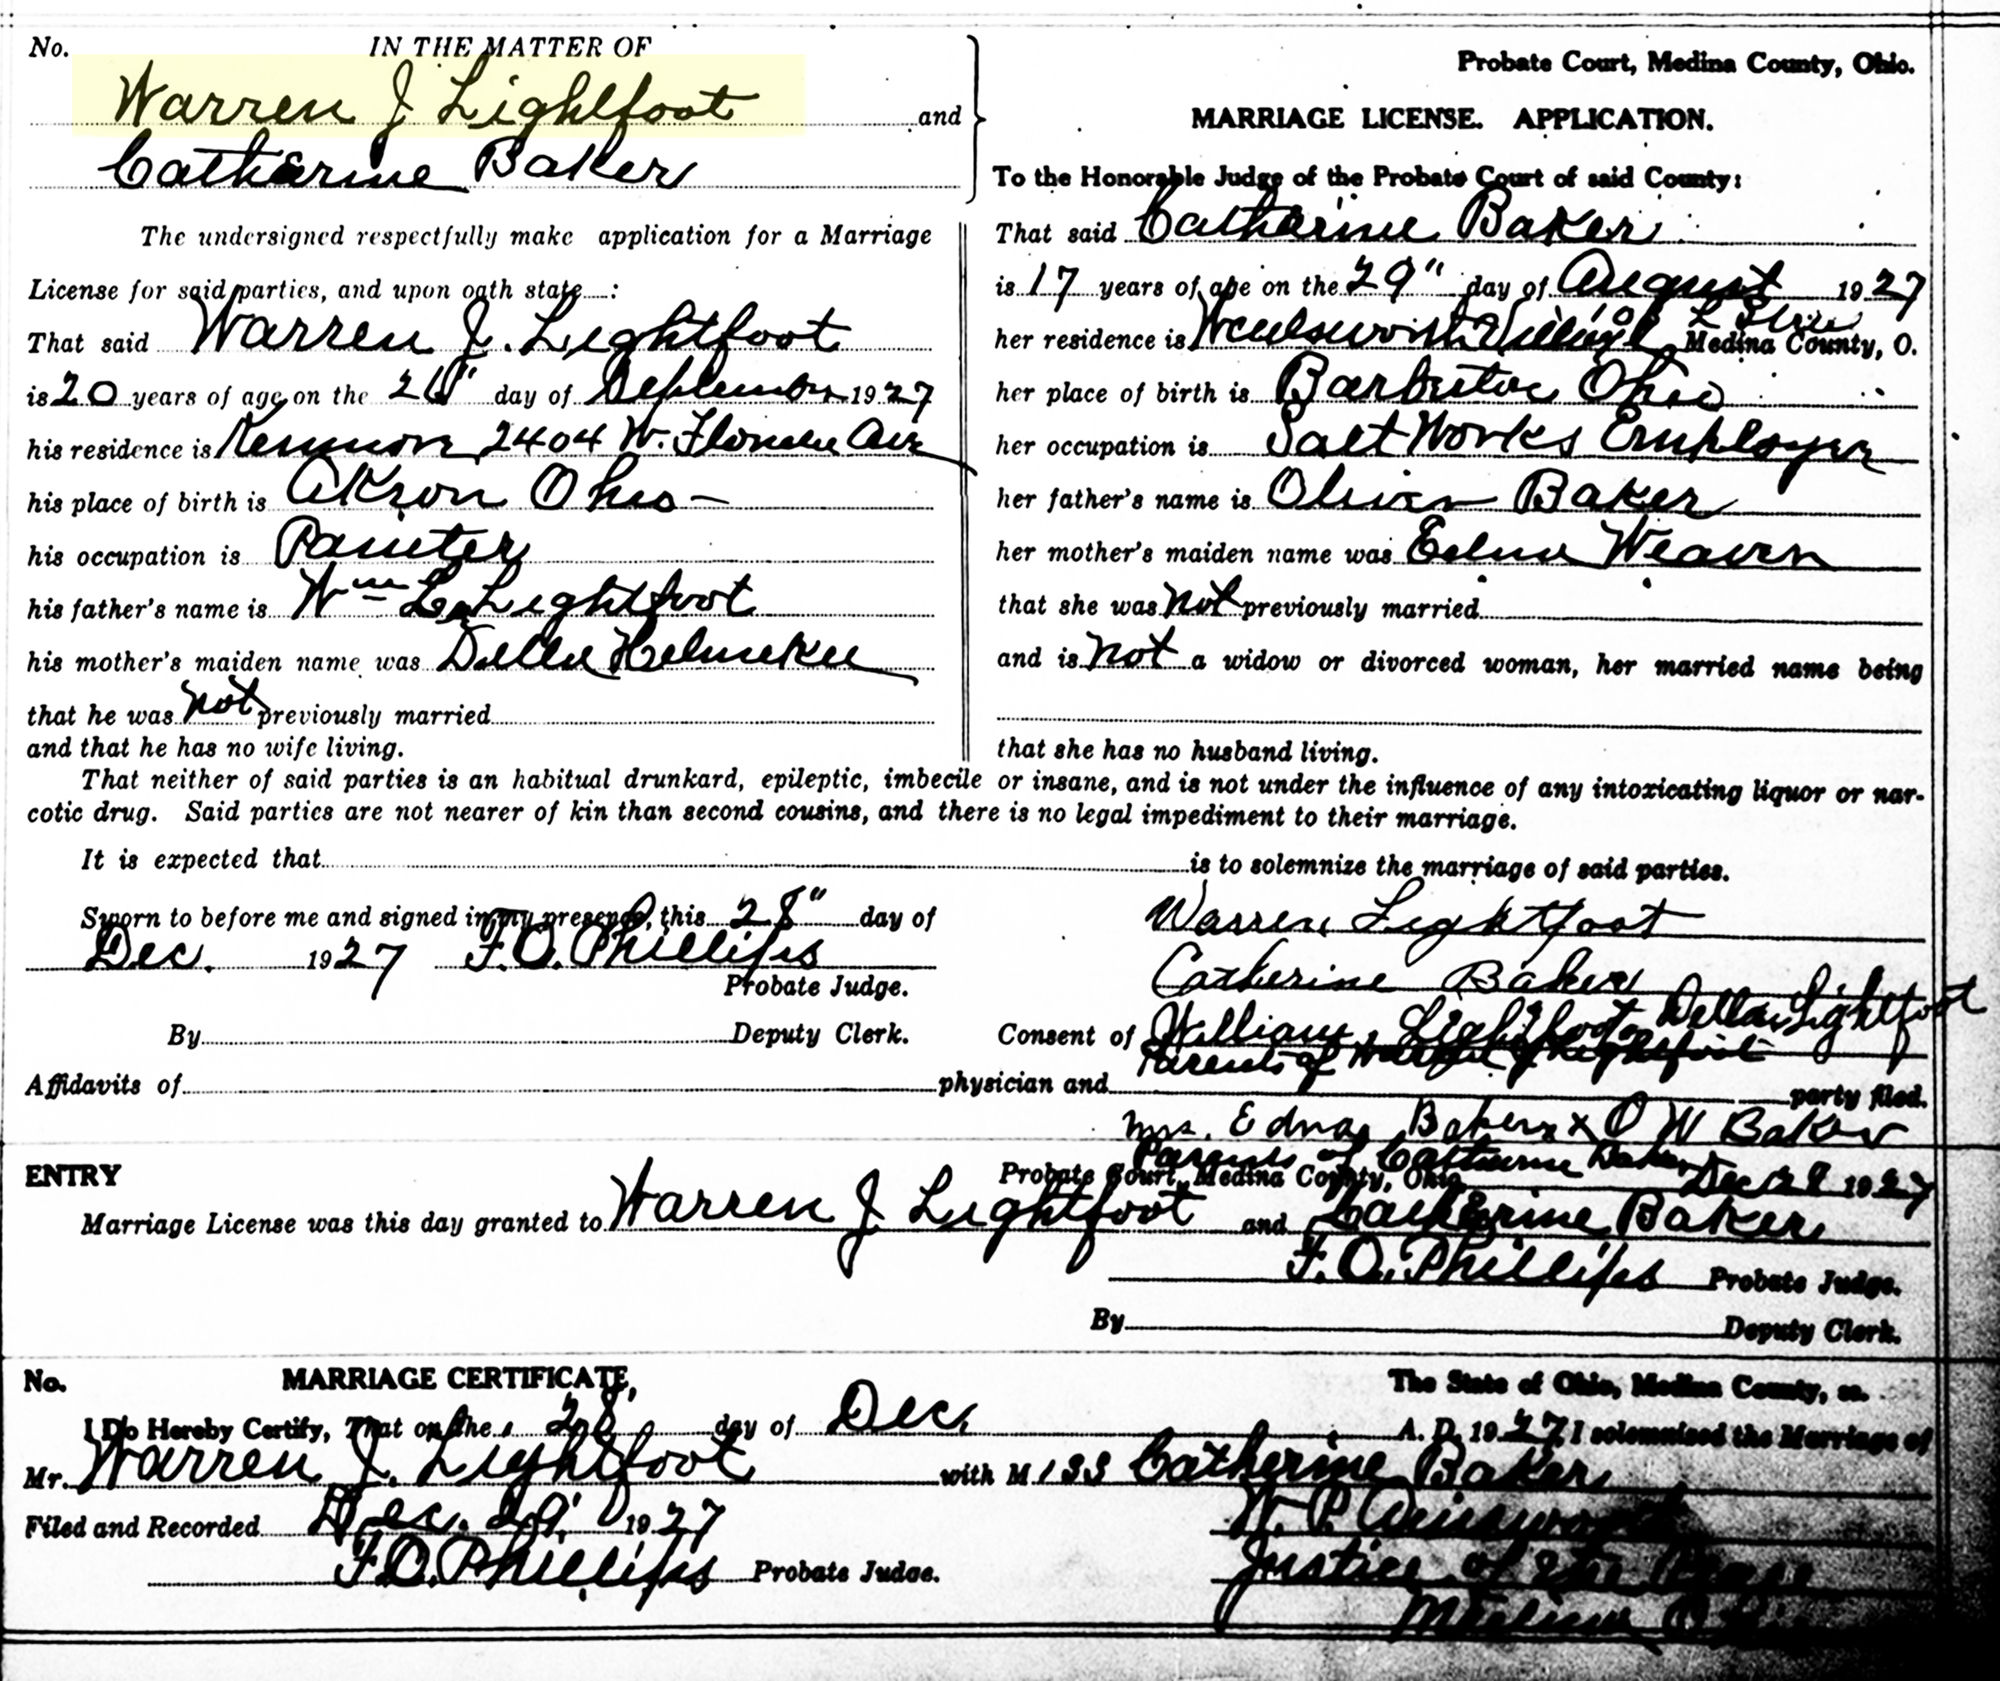 No. IN THE MATTER OF
Warren J Lightfoot and
Catharine Baker
The undersigned respectfully make application for a Marriage
License for said parties, and upon oath state :
That said Warren J. Lightfoot
is 20 years of age on the day of September 1927
his residence is Kenmore 2404 W. Ave
his place of birth is Akron Ohio
his occupation is Painter
his father's name is Wm L Lightfoot
his mother's maiden name was Della
that he was not previously married
and that he has no wife living.
Probate Court, Medina County, Ohio.
MARRIAGE LICENSE. APPLICATION.
To the Honorable Judge of the Probate Court of said County:
That said Catharine Baker
is 17 years of age on the 29" day of August 1927
her residence is Wadsworth Village Medina County, O.
her place of birth is Ohio
her occupation is Salt Works
her father's name is Oliver Baker
her mother's maiden name was Edna Weaver
that she was not previously married
and is not a widow or divorced woman, her married name being
that she has no husband living.
That neither of said parties is an habitual drunkard, epileptic, imbecile or insane, and is not under the influence of any intoxicating liquor or nar-
cotic drug. Said parties are not nearer of kin than second cousins, and there is no legal impediment to their marriage.
It is expected that is to solemnize the marriage of said parties.
Sworn to before me and signed in my presence, this 28" day of
Dec. 1927 F.O. Phillips
Probate Judge.
By Deputy Clerk.
Warren Lightfoot
Catherine Baker
Consent of William Lightfoot Della Lightfoot
Parents of Warren J Lightfoot
Affidavits of physician and party filed.
Mrs. Edna Baker O W Baker
Parents of Catherine Baker
ENTRY Probate Court, Medina County, Ohio, Dec 28 1927
Marriage License was this day granted to Warren J Lightfoot and Catherine Baker
F.O. Phillips Probate Judge.
By Deputy Clerk.
No. MARRIAGE CERTIFICATE, The State of Ohio, Medina County, ss.
I Do Hereby Certify, That on the 28 day of Dec. A. D. 1927, I solemnized the Marriage of
Mr. Warren J. Lightfoot with Miss Catherine Baker
W. P. Ainsworth
Filed and Recorded Dec. 29, 1927
Justice of the Peace
F.O. Phillips Probate Judge.
Medina Ohio